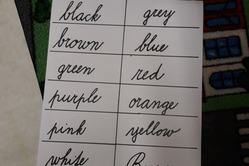 black grey
brown blue
green red
purple orange
pink yellow
white